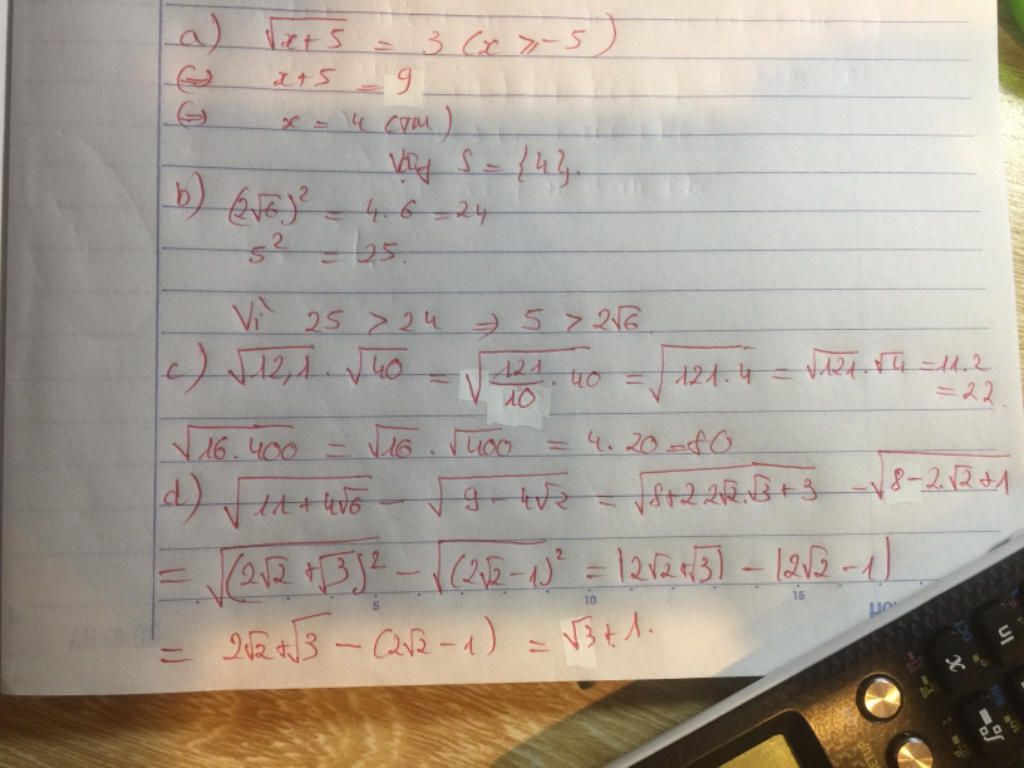 a) √(x+5) = 3 (x ⩾ -5)
⇔ x+5 = 9
⇔ x = 4 (TM)
Vậy S = {4}.
b) (2√6)² = 4.6 = 24
5² = 25.
Vì 25 > 24 ⇒ 5 > 2√6
c) √12,1 . √40 = √(121/10 . 40) = √(121.4) = √121.√4 = 11.2
= 22
√(16.400) = √16 . √400 = 4.20 = 80
d) √(11+4√6) - √(9-4√2) = √(8+2.2√2.√3+3) - √(8-2.√2+1)
= √(2√2+√3)² - √(2√2-1)² = |2√2+√3| - |2√2-1|
5 10 15
= 2√2+√3 - (2√2-1) = √3+1.